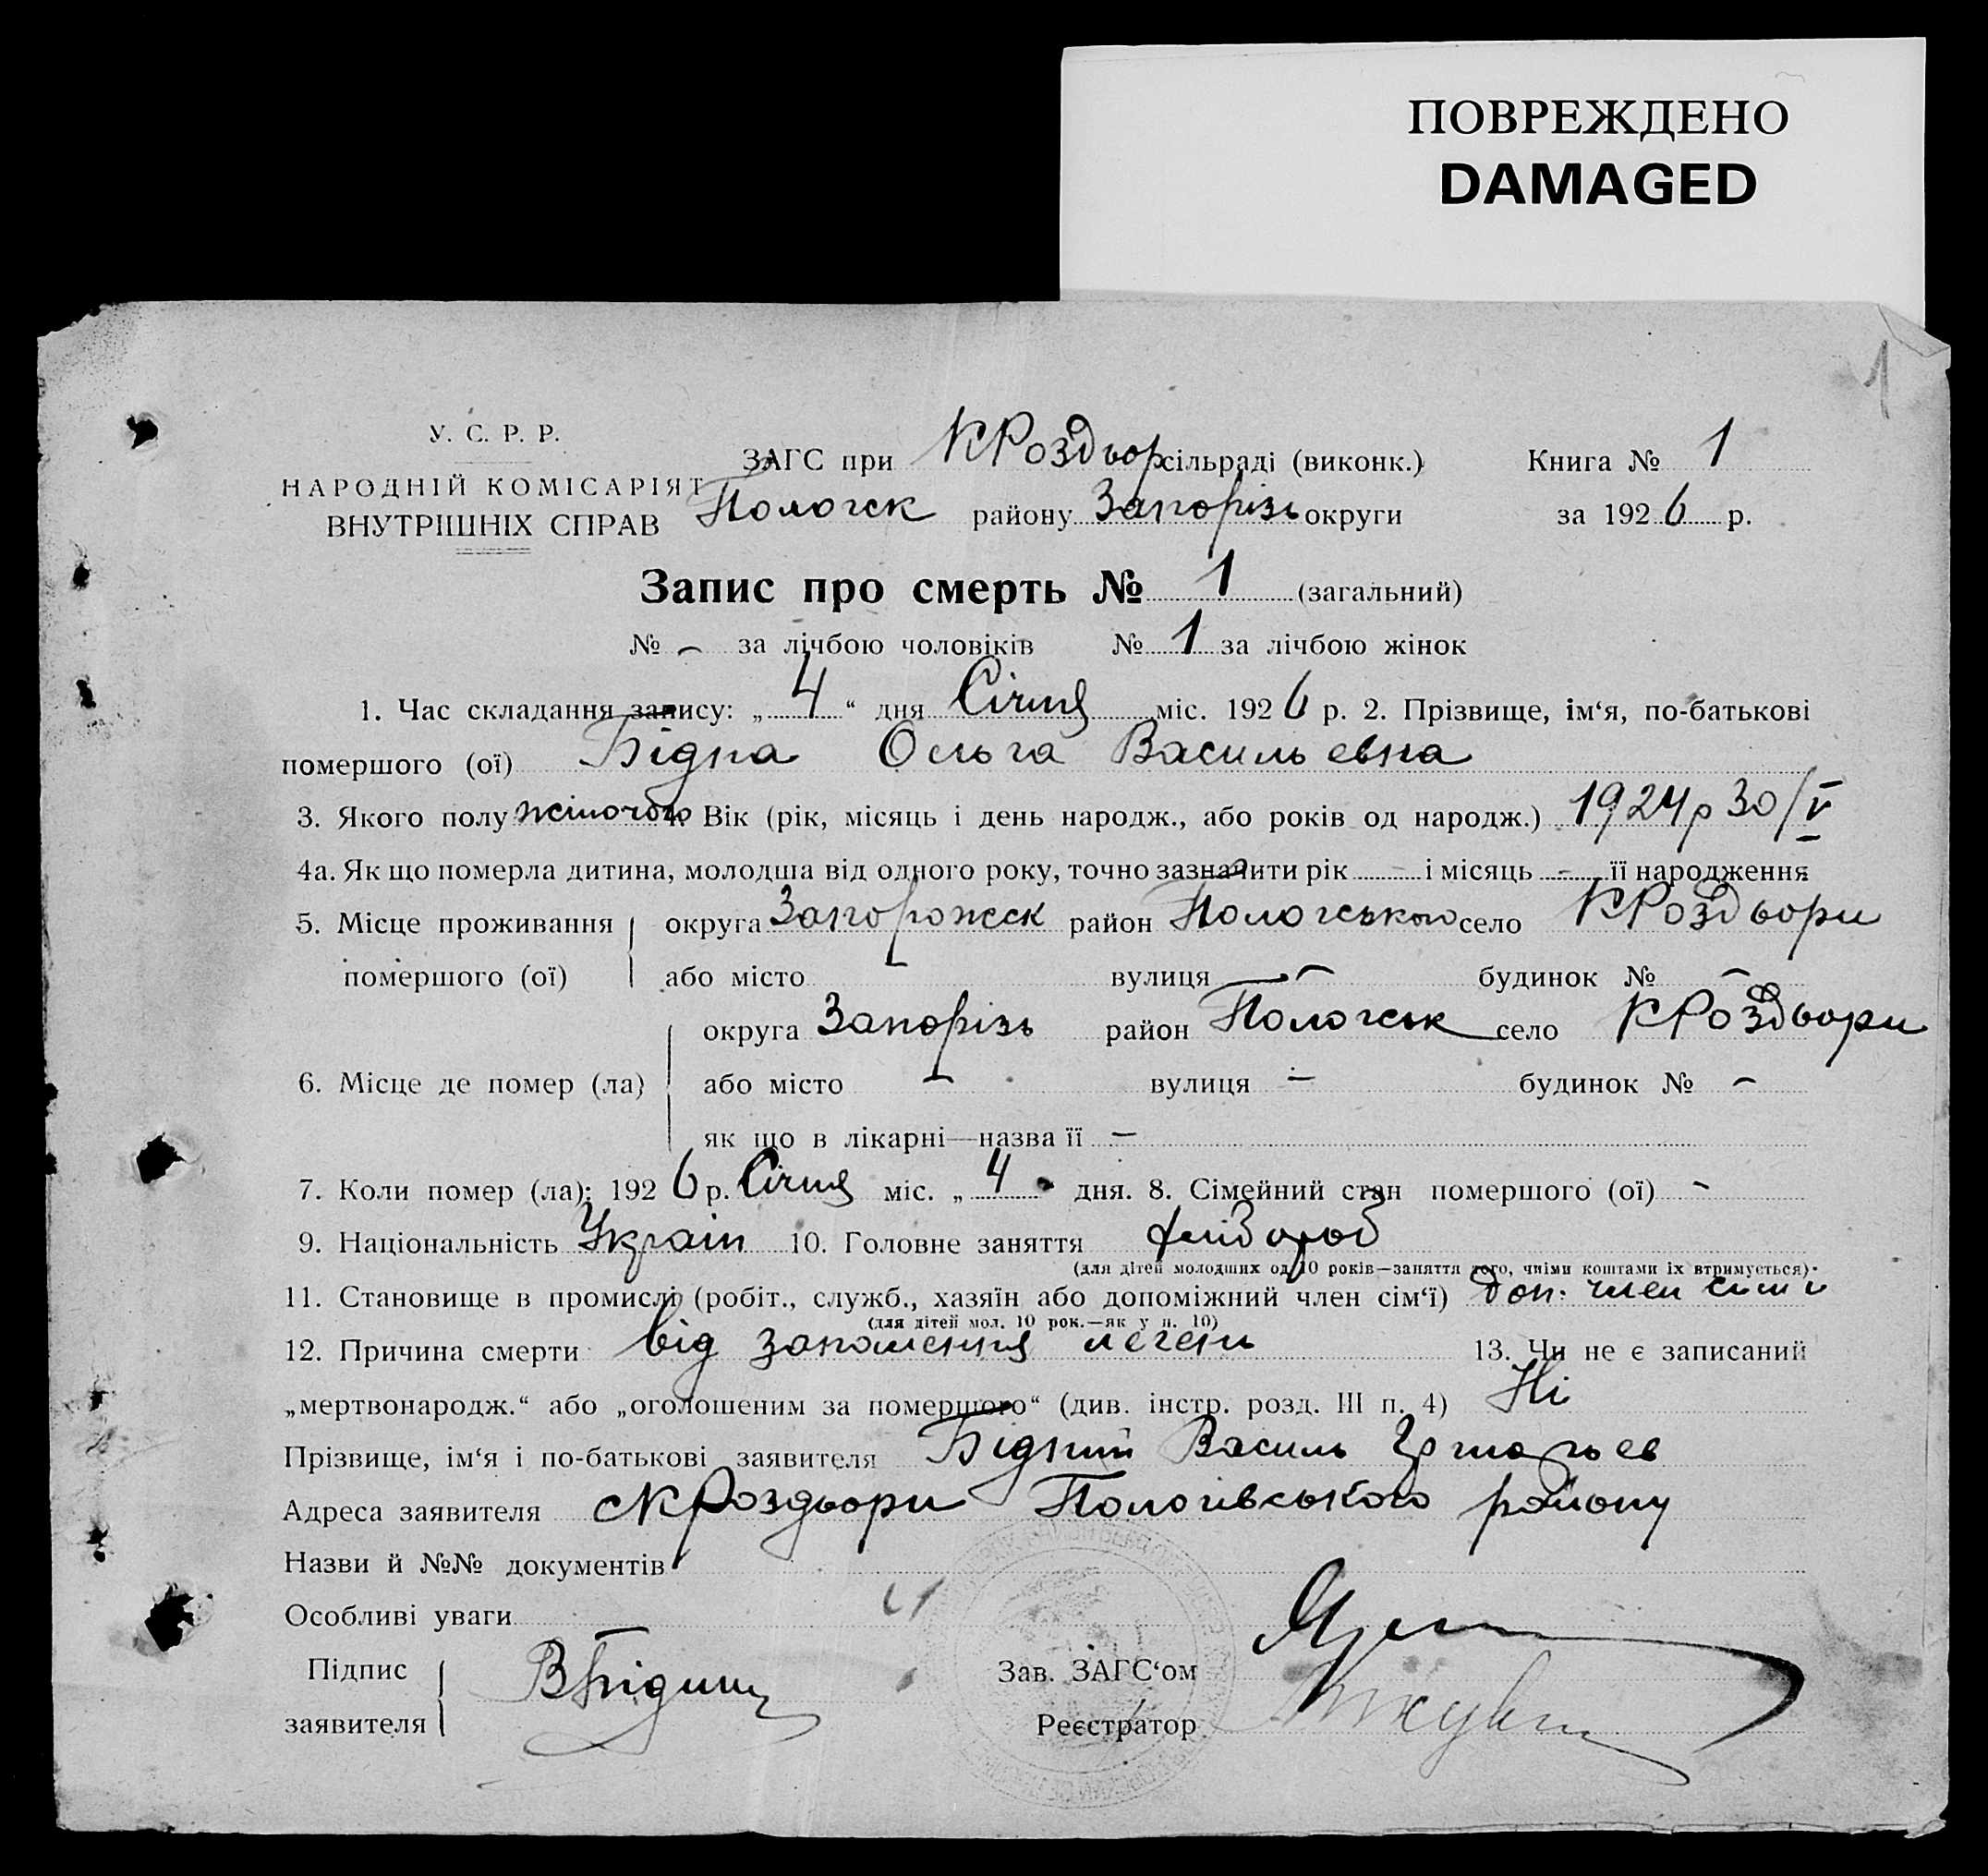 ПОВРЕЖДЕНО
DAMAGED
1
У. С. Р. Р.
НАРОДНІЙ КОМІСАРІЯТ
ВНУТРІШНІХ СПРАВ
ЗАГС при КРоздвор сільраді (виконк.)
Пологск району Запорізь округи
Книга № 1
за 1926 р.
Запис про смерть № 1 (загальний)
№ - за лічбою чоловіків № 1 за лічбою жінок
1. Час складання запису: „4“ дня Січня міс. 1926 р. 2. Прізвище, ім‘я, по-батькові
помершого (ої) Бідна Ольга Васильевна
3. Якого полу жіночого Вік (рік, місяць і день народж., або років од народж.) 1924 р 30/V
4а. Як що померла дитина, молодша від одного року, точно зазначити рік - і місяць - її народження
5. Місце проживання помершого (ої) округа Запорожск район Пологського село КРоздвори
або місто - вулиця - будинок № -
6. Місце де помер (ла) округа Запорізь район Пологськ село КРоздвори
або місто - вулиця - будинок № -
як що в лікарні—назва її -
7. Коли помер (ла): 1926 р. Січня міс. „4“ дня. 8. Сімейний стан помершого (ої) -
9. Національність Україн 10. Головне заняття хлібороб
(для дітей молодших од 10 років—заняття того, чиїми коштами їх втримується).
11. Становище в промислі (робіт., служб., хазяїн або допоміжний член сім‘ї) доп. член сімї
(для дітей мол. 10 рок.—як у п. 10)
12. Причина смерти від запалення легень 13. Чи не є записаний
„мертвонародж.“ або „оголошеним за помершого“ (див. інстр. розд. III п. 4) Ні
Прізвище, ім‘я і по-батькові заявителя Бідний Василь
Адреса заявителя с КРоздвори Пологівського району
Назви й №№ документів
Особливі уваги
Підпис заявителя ВБідний
Зав. ЗАГС‘ом
Реєстратор